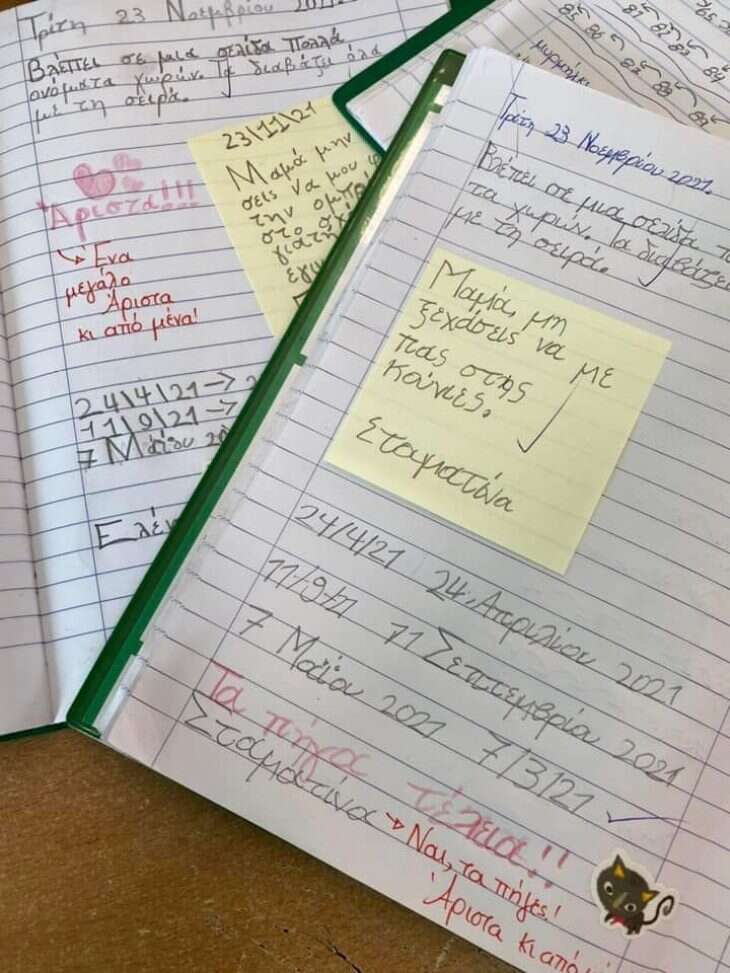 Τρίτη 23 Νοεμβρίου
Βλέπει σε μια σελίδα πολλά
ονόματα χωρών. Τα διαβάζει όλα
με τη σειρά.
Άριστα!!!
Ένα
μεγάλο
Άριστα
κι από μένα!
23\11\21
Μαμά μην
σεις να μου
την ομπρ
στο σχ
γιατη
εγιν
24\4\21 →
11\9\21 →
7 Μαΐου 20
Ελέν
85 86
μυρμήγκι
Τρίτη 23 Νοεμβρίου 2021.
Βλέπει σε μια σελίδα
τα χωρών. Τα διαβάζει
με τη σειρά.
Μαμά, μη
ξεχάσεις να με
πας στης
κούνιες.
Σταματίνα
24/4/21 24 Απριλίου 2021
11/9/21 11 Σεπτεμβρία 2021
7 Μαΐου 2021 7/3/21
Τα πήγας τέλεια!!
Σταματίνα
Ναι, τα πήγες!
Άριστα κι από